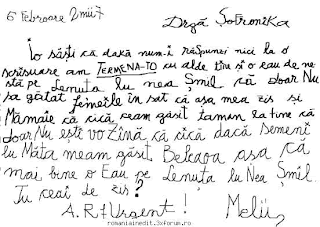 6 Febroare 2mii7
Drgă Șofronika
Io săști că dakă num-i răspunei nici la o
scrisuare am TERMENA-TO cu alde tine și o eau de ne
stă pe Lenuța lu nea Șmil că doar Nu
sa gătat femeile în sat că așa mea zis și
Mămaie că cică ceam găsit taman la tine că
doar Nu ești vo Zînă că cică dacă semeni
lu Măta meam găsit Beleaoa așa că
mai bine o Eau pe Lenuța lu Nea Șmil
Tu ceai de zis?
A.R.F Urgent! Meliu,
romaniainedit.3xforum.ro